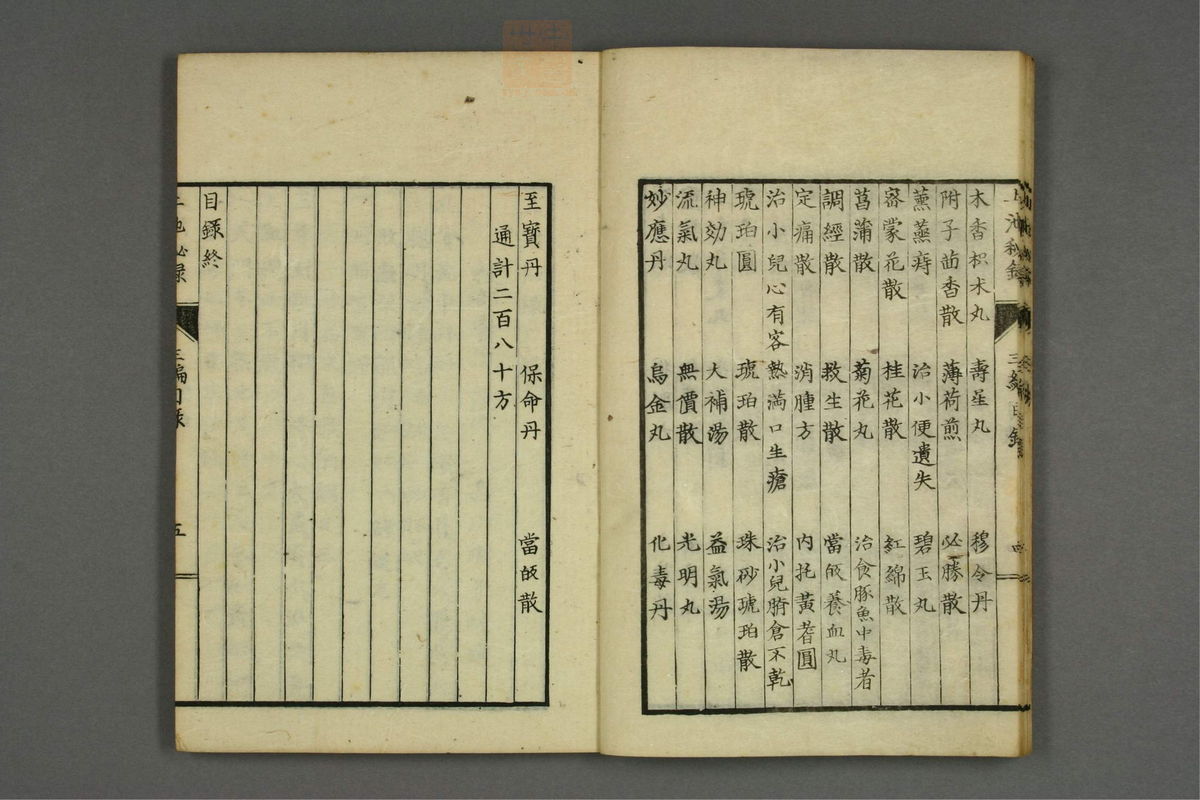 木香枳朮丸 壽星丸 穆令丹
附子茴香散 薄荷煎 必勝散
薰蒸痔 治小便遺失 碧玉丸
密蒙花散 桂花散 紅綿散
菖蒲散 菊花丸 治食豚魚中毒者
調經散 救生散 當皈養血丸
定痛散 消腫方 内托黃耆圓
治小兒心有客熱滿口生瘡 治小兒臍倉不乾
琥珀圓 琥珀散 珠砂琥珀散
神効丸 大補湯 益氣湯
流氣丸 無價散 光明丸
妙應丹 烏金丸 化毒丹
至寶丹 保命丹 當皈散
通計二百八十方
目錄終
三編目錄
五